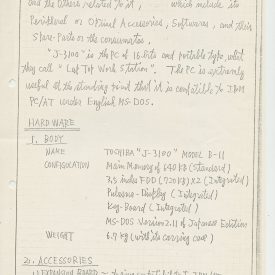 and the others related to it, which include its
Peripheral or Optional Accessories, Softwares, and their
Spare-Parts or the consumables.
"J-3100" is the PC of 16-bits and portable type, what
they call "Lap Top Work Station". The PC is extremely
useful at the standing point that it is compatible to IBM
PC/AT under English MS-DOS.
HARDWARE
1. BODY
NAME TOSHIBA "J-3100" MODEL B-11
CONFIGULATION Main Memory of 640 KB (Standard)
3.5 inches FDD (720KB) X2 (Integrated)
Plasma-Display (Integrated)
Key-Board (Integrated)
MS-DOS Version 2.11 of Japanese Edition
WEIGHT 6.7 kg (with its carrying case)
2. ACCESSORIES
1) EXPANSION BOARD